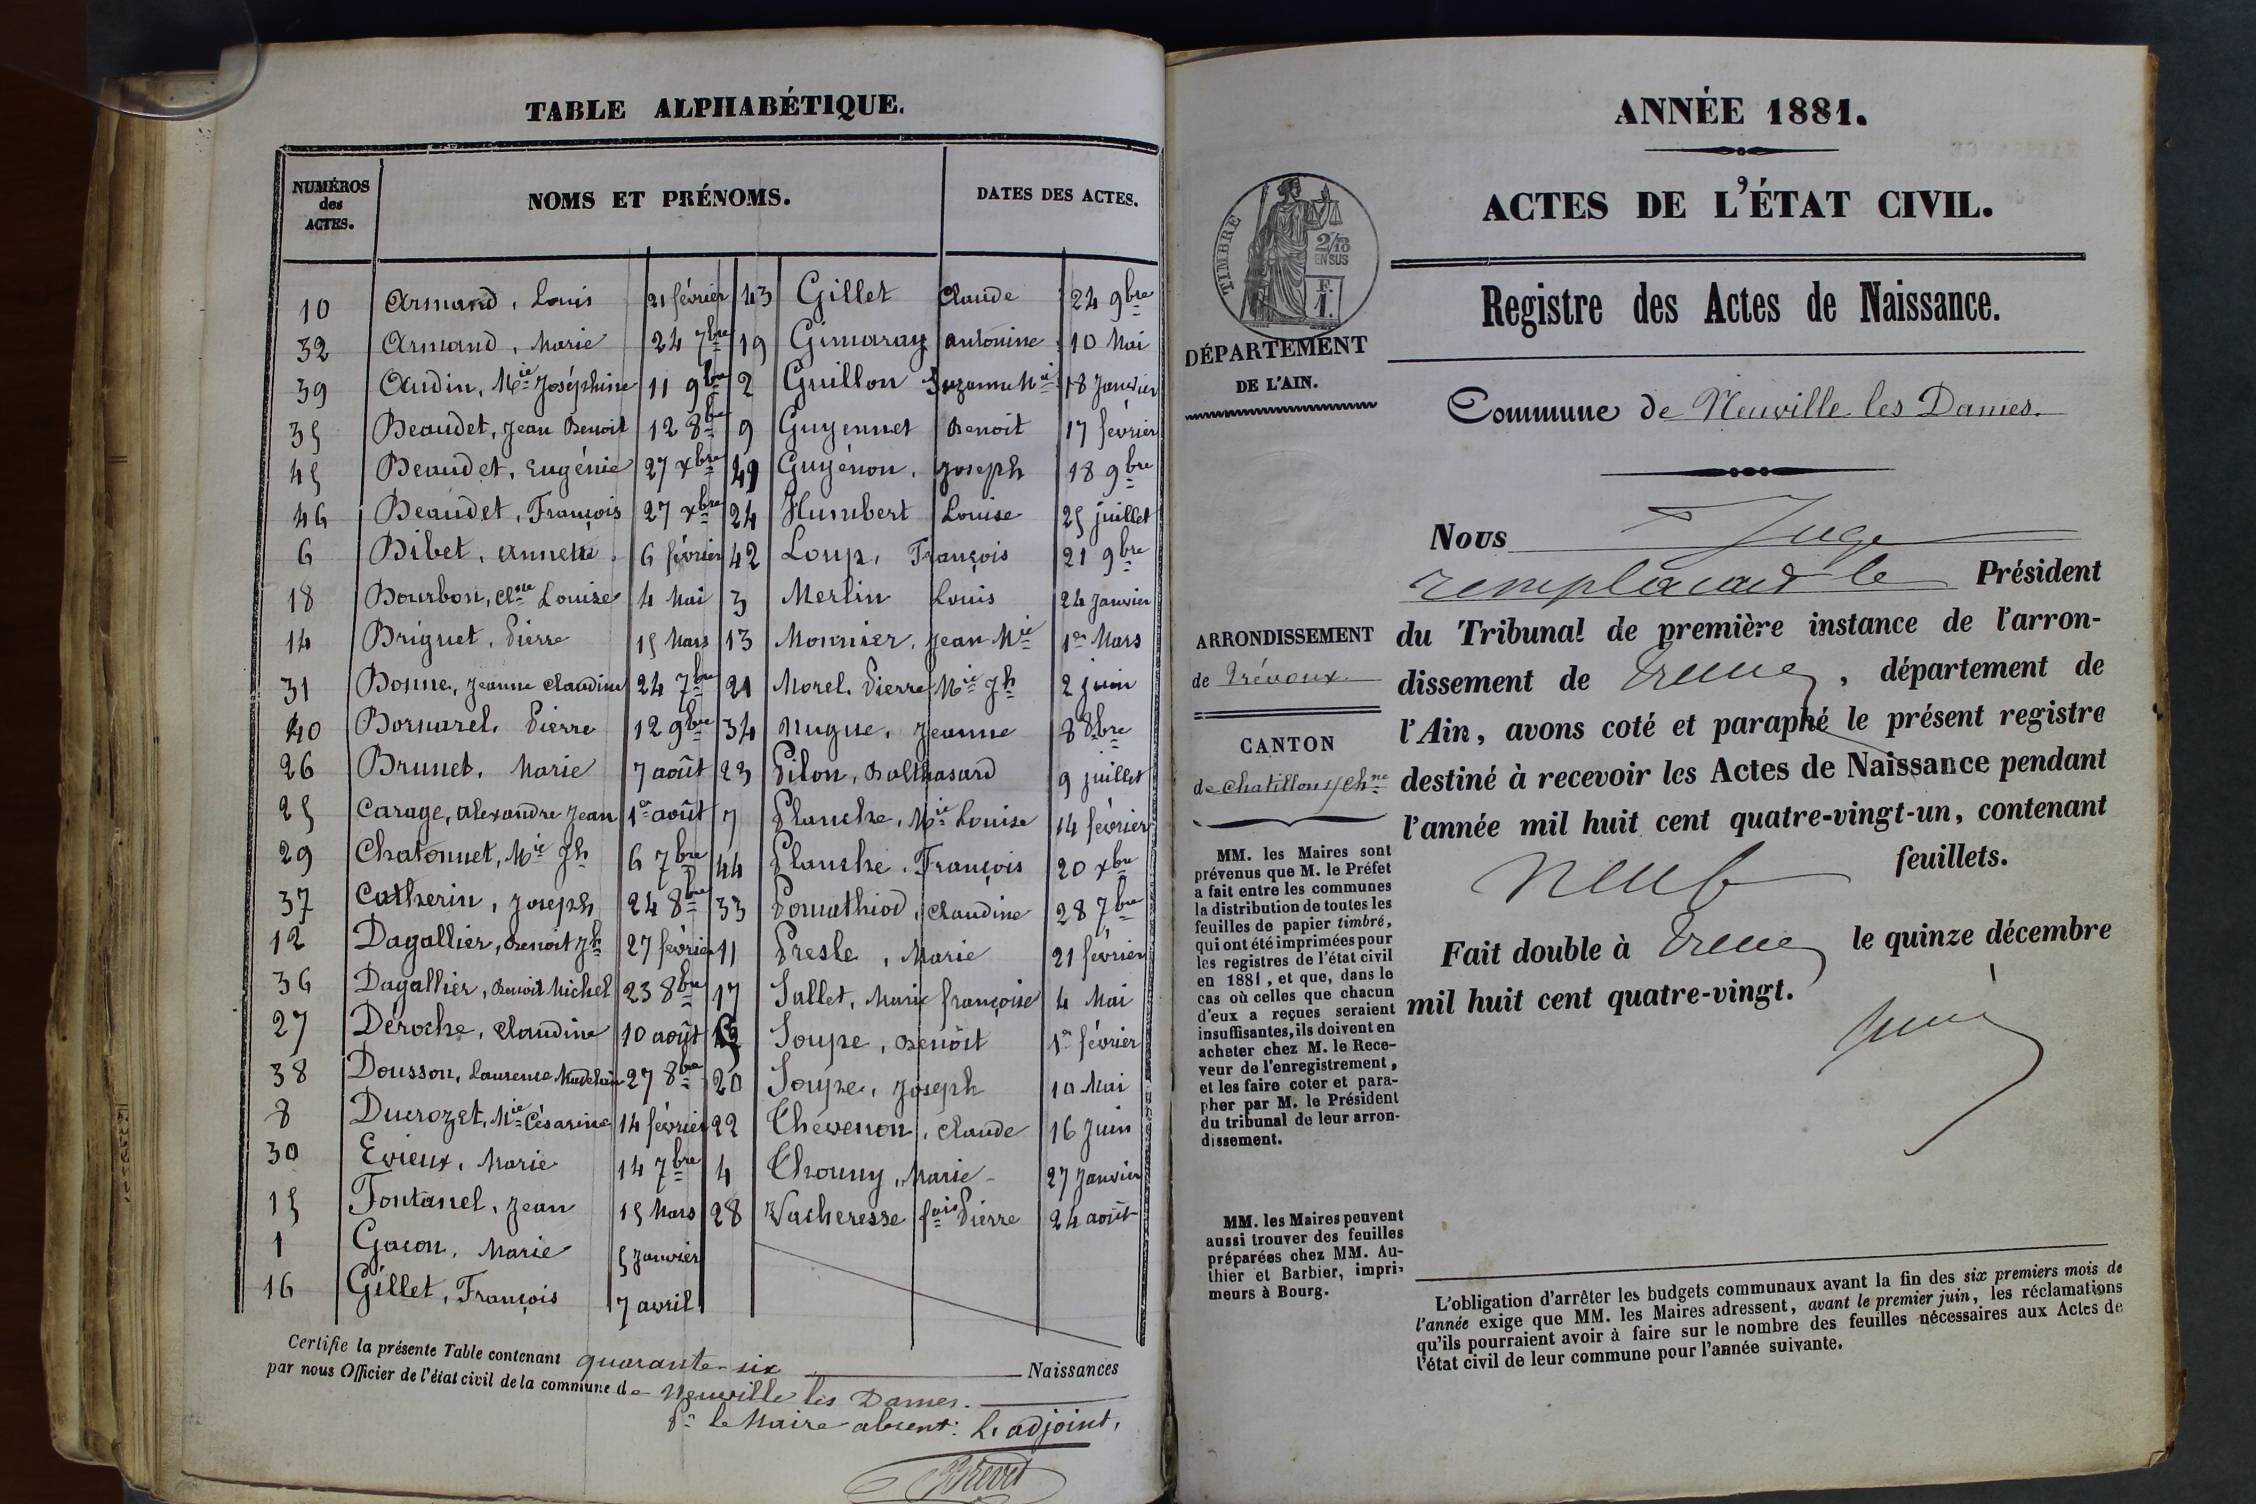 TABLE ALPHABÉTIQUE.
NUMÉROS des ACTES. NOMS ET PRÉNOMS. DATES DES ACTES.
10 Armand, Louis 21 février
32 Armand, Marie 24 7bre
39 Audin, Mie Joséphine 11 9bre
35 Beaudet, Jean Benoit 12 8bre
45 Beaudet, Eugénie 27 xbre
46 Beaudet, François 27 xbre
6 Bibet, Annette 6 février
18 Bourbon, Louise 4 Mai
14 Briguet, Pierre 15 Mars
31 Bonne, Jeanne Claudine 24 7bre
40 Bornarel, Pierre 12 9bre
26 Brunet, Marie 7 août
25 Carage, Alexandre Jean 1er août
29 Chatonnet, Mie Jh 6 7bre
37 Catherin, Joseph 24 8bre
12 Dagallier, Benoit Jh 27 février
36 Dagallier, Benoit Michel 23 8bre
27 Déroche, Claudine 10 août
38 Dousson, Laurence 27 8bre
8 Ducrozet, Mie Césarine 14 février
30 Evieux, Marie 14 7bre
15 Fontanel, Jean 15 Mars
1 Gacon, Marie 5 Janvier
16 Gillet, François 7 avril
43 Gillet Claude 24 9bre
19 Gimaray Antonine 10 Mai
2 Guillon Suzanne Mie 18 Janvier
9 Guyennet Benoit 17 février
Guyénon, Joseph 18 9bre
24 Humbert Louise 25 juillet
42 Loup, François 21 9bre
3 Merlin Louis 24 Janvier
13 Monnier, Jean Mie 1er Mars
21 Morel, Pierre Mie Jh 2 juin
34 Nugue, Jeanne 8 8bre
23 Pilon, Balthasard 9 juillet
7 Planche, Mie Louise 14 février
44 Planche, François 20 xbre
33 Pomathiod, Claudine 28 7bre
11 Presle, Marie 21 février
17 Sallet, Marie françoise 4 Mai
Soupe, Benoît 1er février
20 Soupe, Joseph 10 Mai
22 Thévenon, Claude 16 Juin
4 Thouny, Marie 27 Janvier
28 Vacheresse fois Pierre 24 août
Certifie la présente Table contenant quarante-six Naissances
par nous Officier de l'état civil de la commune de Neuville les Dames.
Pr le Maire absent: L'adjoint,
Brevet
ANNÉE 1881.
ACTES DE L'ÉTAT CIVIL.
TIMBRE
2/10
EN SUS
F.
1.
DÉPARTEMENT
DE L'AIN.
Registre des Actes de Naissance.
Commune de Neuville les Dames.
Nous Juge
remplacant le Président
du Tribunal de première instance de l'arron-
dissement de , département de
l'Ain, avons coté et paraphé le présent registre
destiné à recevoir les Actes de Naissance pendant
l'année mil huit cent quatre-vingt-un, contenant
neuf feuillets.
Fait double à le quinze décembre
mil huit cent quatre-vingt.
ARRONDISSEMENT
de Trévoux.
CANTON
de Chatillon s/ Chne
MM. les Maires sont
prévenus que M. le Préfet
a fait entre les communes
la distribution de toutes les
feuilles de papier timbré,
qui ont été imprimées pour
les registres de l'état civil
en 1881, et que, dans le
cas où celles que chacun
d'eux a reçues seraient
insuffisantes, ils doivent en
acheter chez M. le Rece-
veur de l'enregistrement,
et les faire coter et para-
pher par M. le Président
du tribunal de leur arron-
dissement.
MM. les Maires peuvent
aussi trouver des feuilles
préparées chez MM. Au-
thier et Barbier, impri-
meurs à Bourg.
L'obligation d'arrêter les budgets communaux avant la fin des six premiers mois de
l'année exige que MM. les Maires adressent, avant le premier juin, les réclamations
qu'ils pourraient avoir à faire sur le nombre des feuilles nécessaires aux Actes de
l'état civil de leur commune pour l'année suivante.